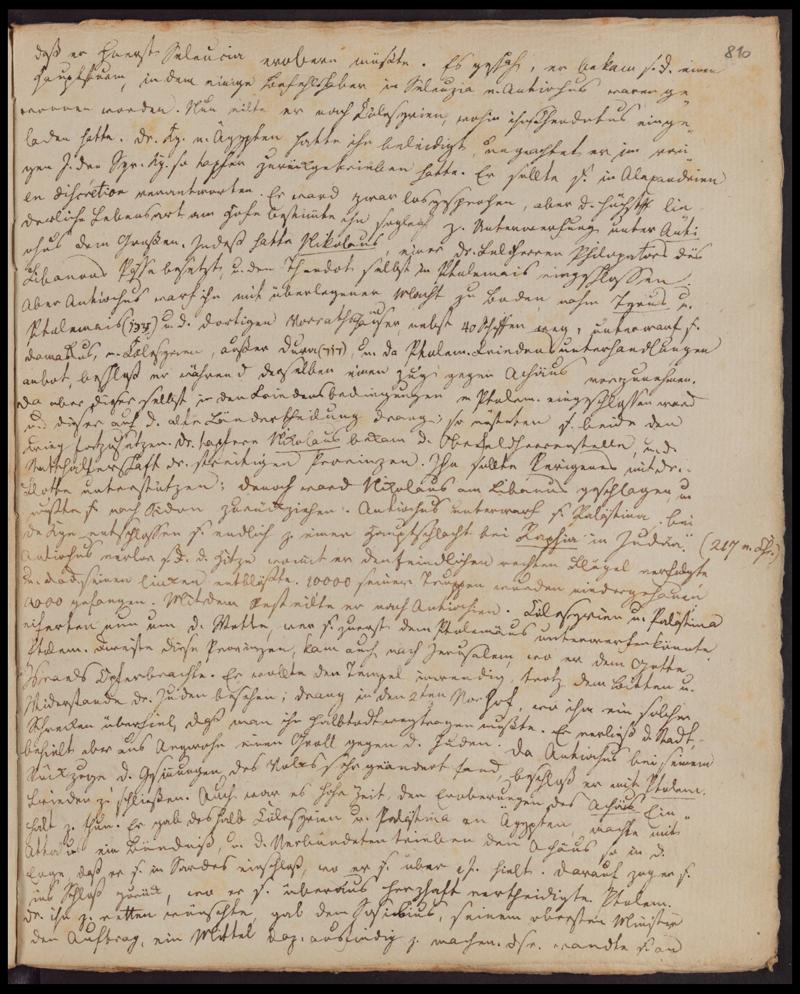 810
daß er zuerst Seleucia erobern müßte. Es geschah, er bekam s. d. einen
Hauptsturm, in dem einige Befehlshaber in Seleuzia v. Antiochus waren ge¬
wonnen worden. Nun eilte er nach Cölesyrien, wohin ihn Theodotus einge¬
laden hatte. Dr. Kg. v. Ägypten hatte ihn beleidigt, ungeachtet er im vori¬
gen J. den Syr. Kg. so tapfer zurückgetrieben hatte. Er sollte s. in Alexandrien
en discretion verantworten. Er ward zwar losgesprochen, aber d. höchst lie¬
derliche Lebensart am Hofe bestimmte ihn sogleich z. Unterwerfung unter Anti¬
ochus dem Großen. Indeß hatte Nikolaus, einer dr. Feldherren Philopators des
Libanons Pässe besetzt, u. den Theodot selbst in Ptolemais eingeschlossen;
Aber Antiochus warf ihn mit überlegener Macht zu Boden, nahm Tyrus u.
Ptolemais u. d. dortigen Vorrathshäuser, nebst 40 Schiffen weg, unterwarf s.
Damaskus, Cölesyrien, außer Dura, u. da Ptolem. Friedensunterhandlungen
anbot, beschloß er während derselben einen Zug gegen Achäus vorzunehmen.
Da aber dieser selbst in den Friedensbedingungen v. Ptolem. eingeschlossen ward
und dieser auf d. alte Ländertheilung drang; so mußten s. beide den
Krieg fortzusetzen. Dr. tapfere Nikolaus bekam d. Oberfeldherrenstelle, u. d.
Statthalterschaft dr. streitigen Provinzen. Ihn sollte Perigenes mit dr.
Flotte unterstützen; dennoch ward Nikolaus am Libanus geschlagen, u.
mußte s. nach Sidon zurückziehen. Antiochus unterwarf s. Palästina, bei¬
de Kge. entschlossen s. endlich z. einer Hauptschlacht bei Raphia in Judäa. (217 v. Chr.)
Antiochus verlor s. d. d. Hitze womit er den feindlichen rechten Flügel verfolgte
u. dad. seinen linken entblößte. 10000 seiner Truppen wurden niedergehauen
4000 gefangen. Mit dem Rest eilte er nach Antiochien. Cölesyrien u. Palästina
eiferten nun um d. Wette, wer s. zuerst dem Ptolemäus unterwerfen könnte.
Ptolem. bereiste diese Provinzen, kam auch nach Jerusalem, wo er dem Gotte
Israels Opfer brachte. Er wollte den Tempel inwendig, trotz dem Bitten u.
Widerstande dr. Juden besehen; drang in den 2ten Vorhof, wo ihn ein solcher
Schrecken überfiel, daß man ihn halbtodt wegtragen mußte. Er verließ d. Stadt,
behielt aber aus Argwohn einen Groll gegen d. Juden. Da Antiochus bei seinem
Rückzuge d. Gesinnungen des Volks sehr geändert fand, beschloß er mit Ptolem.
Frieden z. schließen. Auch war es hohe Zeit, den Eroberungen des Achäus Ein¬
halt z. thun. Er gab deshalb Cölesyrien u. Palästina an Ägypten, machte mit
Attalus ein Bündniß, u. d. Verbündeten trieben den Achäus so in d.
Enge, daß er s. in Sardes einschloß, wo er s. über 1 J. hielt. Darauf zog er s.
ins Schloß zurück, wo er s. überaus herzhaft vertheidigte. Ptolem.
dr. ihn z. retten wünschte, gab dem Sosibius, seinem obersten Minister
den Auftrag, ein Mittel daz. ausfindig z. machen. dsr. wandte s. an